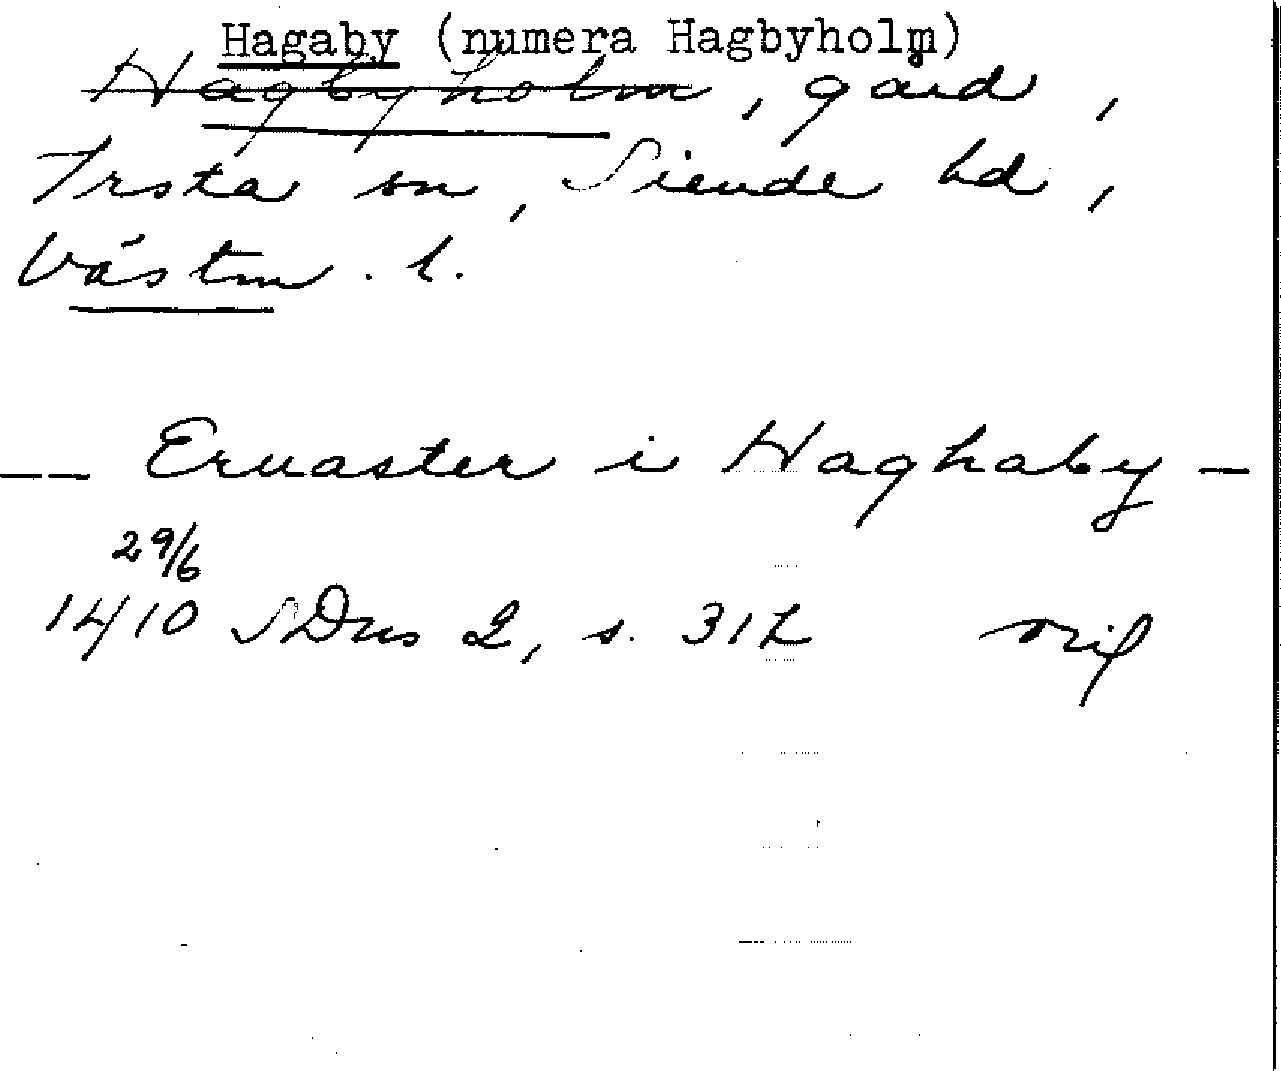 Hagaby (numera Hagbyholm)
Hagbyholm, gård,
Irsta sn, Siende hd,
Västm. l.
-- Ernaster i Haghaby -
29/6
1410 SDns 2, s. 312 orig